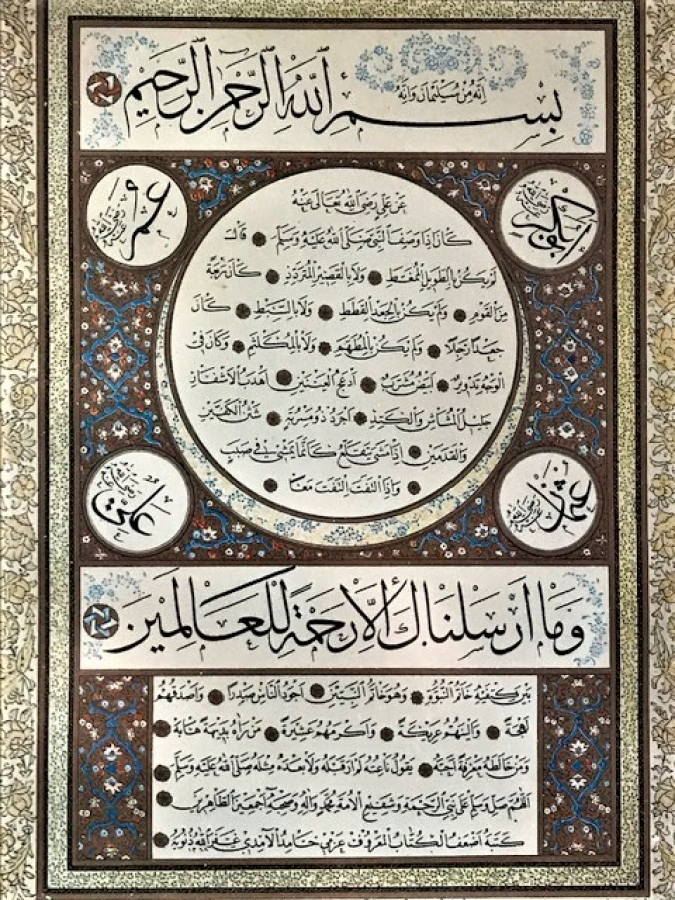 إنه من سليمان وإنه
بسم الله الرحمن الرحيم
أبو بكر رضي الله عنه
عمر رضي الله عنه
عن علي رضي الله تعالى عنه
كان إذا وصف النبي صلى الله عليه وسلم قال
لم يكن بالطويل الممغط ولا بالقصير المتردد كان ربعة
من القوم ولم يكن بالجعد القطط ولا بالسبط كان
جعدا رجلا ولم يكن بالمطهم ولا بالمكلثم وكان في
الوجه تدوير أبيض مشرب أدعج العينين أهدب الأشفار
جليل المشاش والكتد أجرد ذو مسربة شثن الكفين
والقدمين إذا مشى تقلع كأنما يمشي في صبب
وإذا التفت التفت معا
عثمان رضي الله عنه
علي رضي الله عنه
وما أرسلناك إلا رحمة للعالمين
بين كتفيه خاتم النبوة وهو خاتم النبيين أجود الناس صدرا وأصدقهم
لهجة وألينهم عريكة وأكرمهم عشيرة من رآه بديهة هابه
ومن خالطه معرفة أحبه يقول ناعته لم أر قبله ولا بعده مثله صلى الله عليه وسلم
اللهم صل وسلم على نبي الرحمة وشفيع الأمة محمد وآله وصحبه أجمعين الطاهرين
كتبه أضعف الكتاب المعروف بحامد الآمدي غفر الله ذنوبه